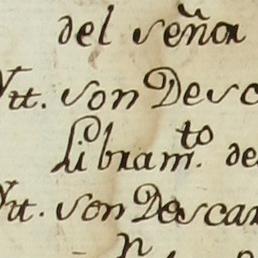 del señor
Ytt. son Desc
Libramto. de
Ytt. son Descar